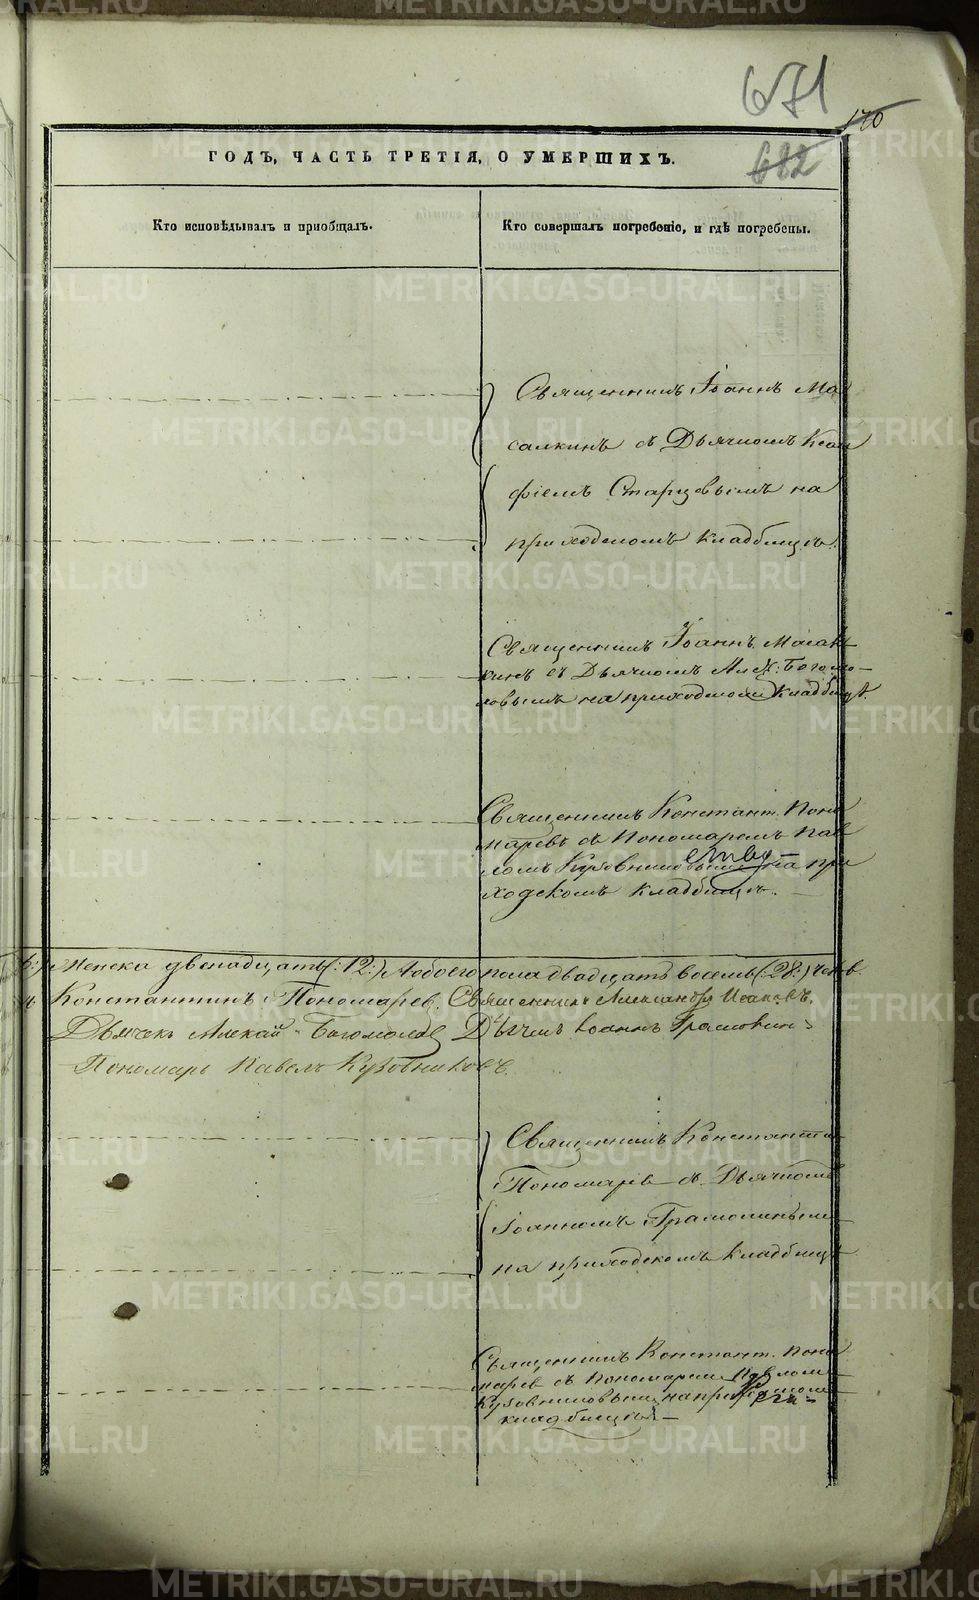 671
170
682
ГОДЪ, ЧАСТЬ ТРЕТІЯ, О УМЕРШИХЪ.
Кто исповѣдывалъ и пріобщалъ.
Кто совершалъ погребеніе, и гдѣ погребены.
Священникъ Іоаннъ Ма
салкинъ съ Дьячкомъ
фіемъ Старцевымъ на
приходскомъ кладбищѣ.
Священникъ Іоаннъ Масал
кинъ съ Дьячкомъ Алек. Богомо-
ловымъ на приходскомъ кладбищѣ.
Священникъ Констант. Поно
маревъ съ Пономаремъ Пав
ломъ Кузовниковымъ на при
ходскомъ кладбищѣ.
Женска двенадцать (:12:) А обоего пола двадцать восемь (:28:) челов.
Константинъ Пономарев. Священникъ Александръ
Дьячекъ Алексѣй Богомолов Дьячекъ Іоаннъ Грамолин
Пономарь Павелъ Кузовниковъ.
Священникъ Константи
Пономарев съ Дьячкомъ
Іоанномъ Грамолинымъ
на приходскомъ кладбищѣ
Священникъ Констант. Поно
марев съ Пономарем Павломъ
Кузовниковым на приходском
кладбищѣ
METRIKI.GASO-URAL.RU